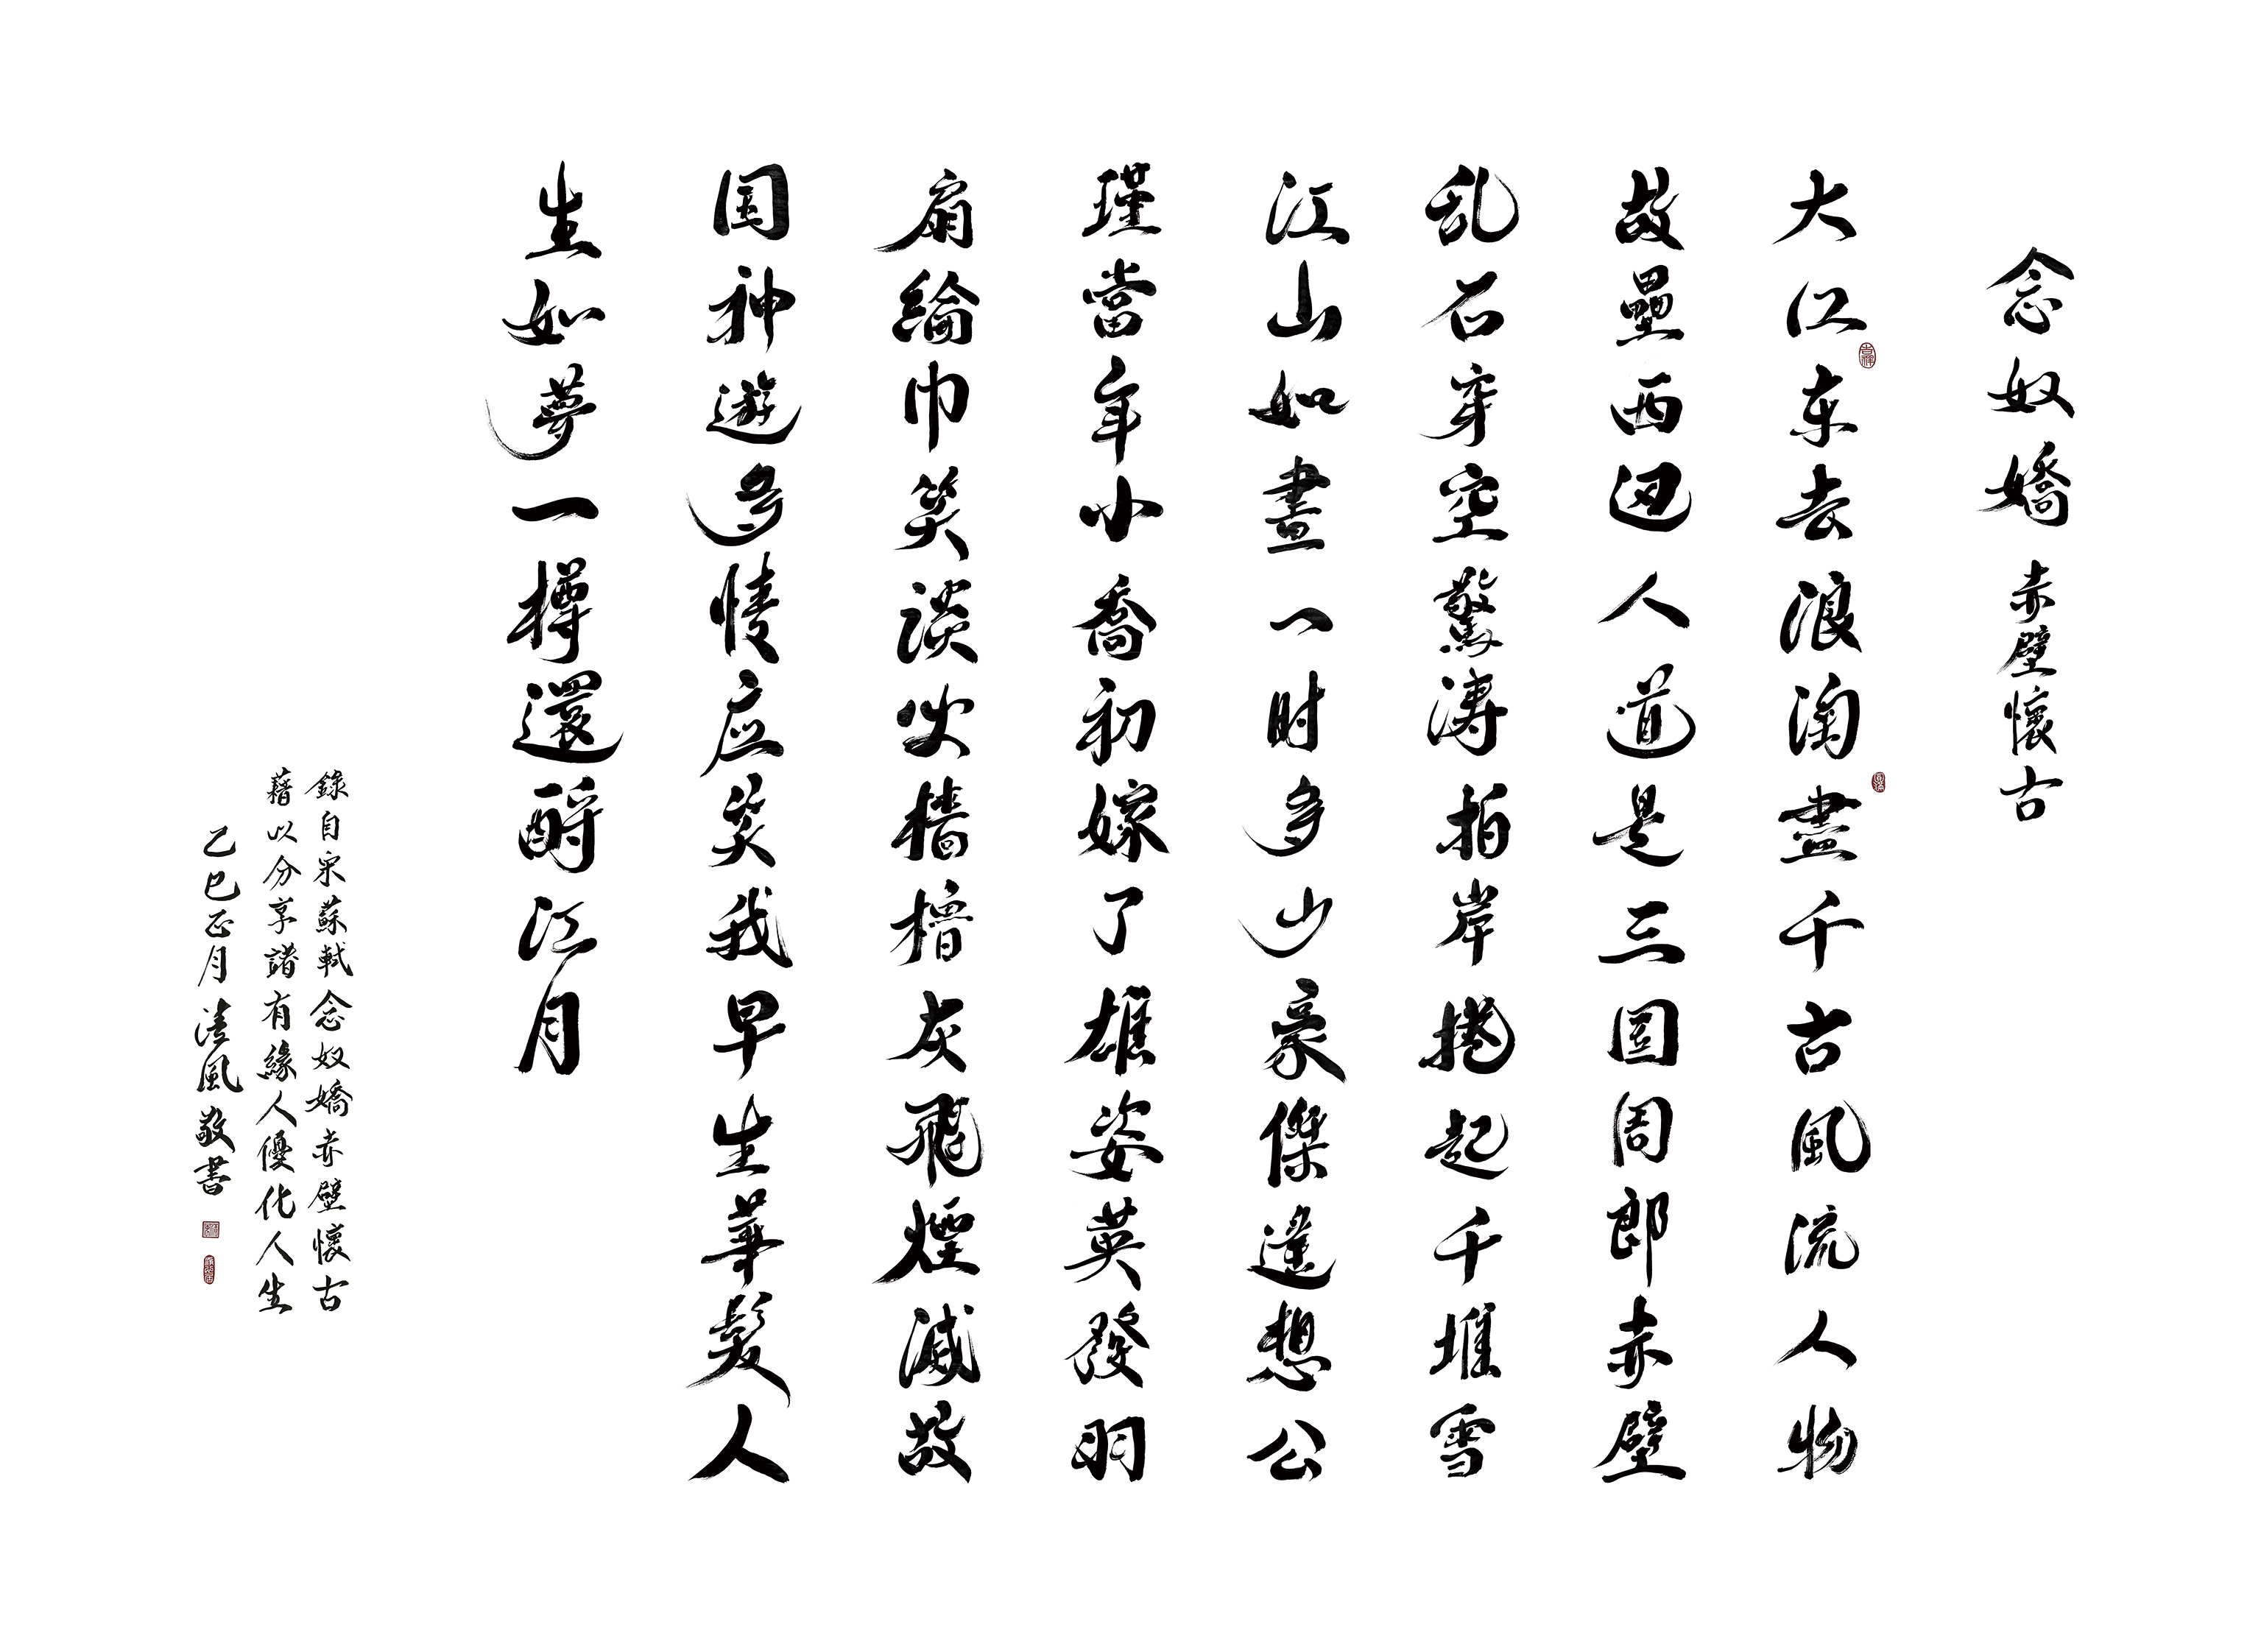 念奴嬌 赤壁懷古
大江东去浪淘盡千古風流人物
故壘西边人道是三国周郎赤壁
乱石穿空驚涛拍岸捲起千堆雪
江山如畫一时多少豪傑遙想公
瑾當年小喬初嫁了雄姿英發羽
扇綸巾笑談间檣櫓灰飛煙滅故
国神遊多情应笑我早生華髮人
生如夢一樽還酹江月
錄自宋蘇軾念奴嬌赤壁懷古
藉以分享諸有緣人優化人生
乙巳正月清風敬書